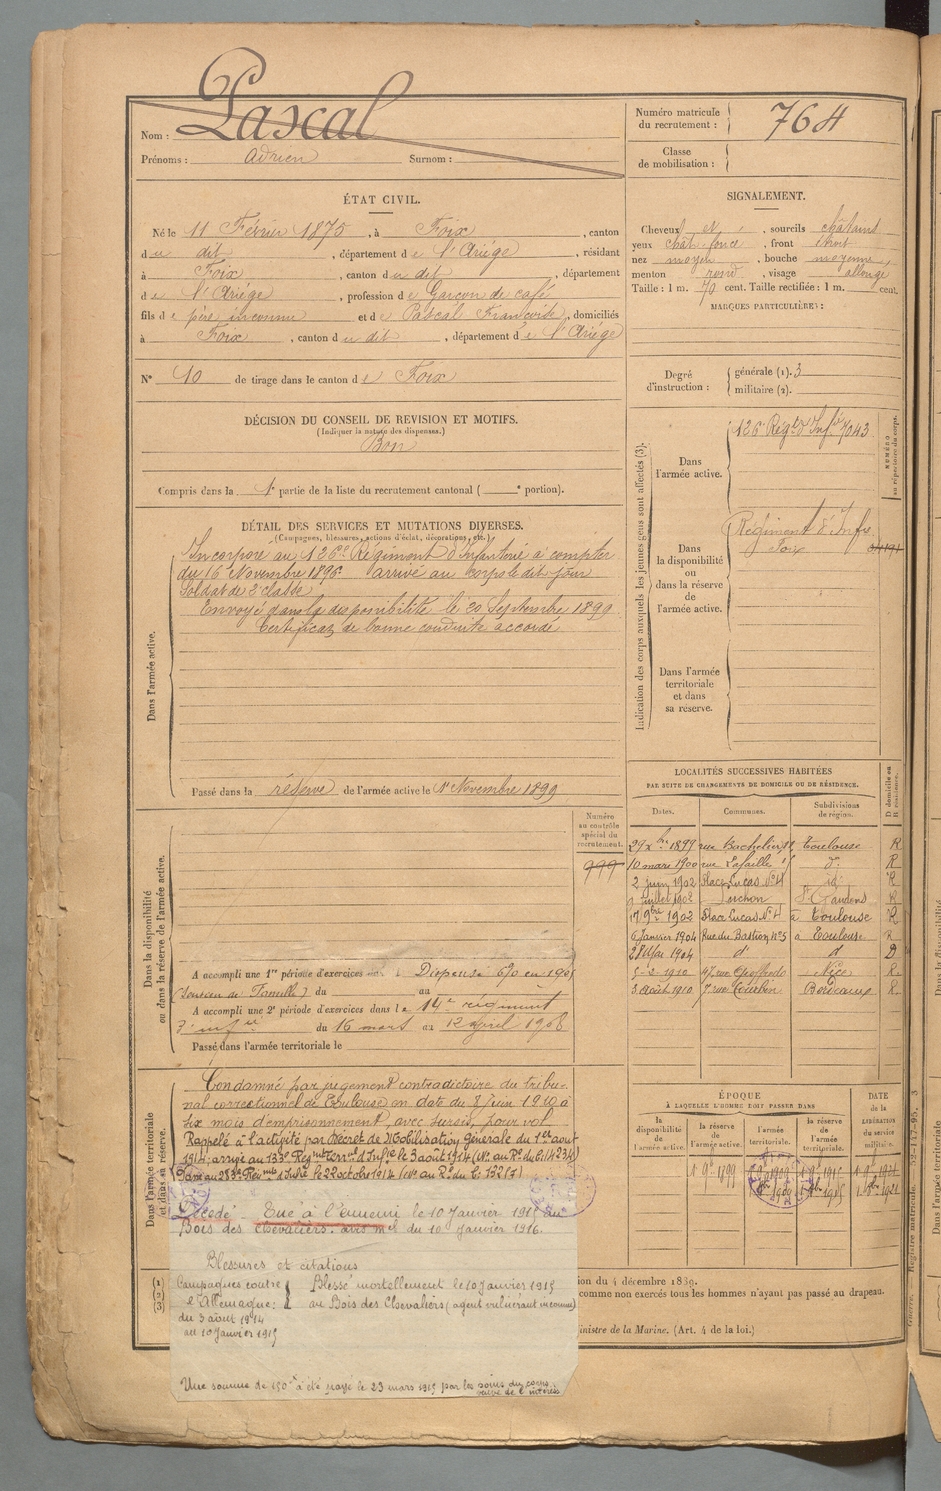 Nom : Pascal
Prénoms : Adrien Surnom :
Numéro matricule
du recrutement : 764
Classe
de mobilisation :
ÉTAT CIVIL.
Né le 11 Février 1875, à Foix, canton
du dit, département de l'Ariége, résidant
à Foix, canton du dit, département
de l'Ariége, profession de Garçon de café
fils de père inconnu et de Pascal Françoise, domiciliés
à Foix, canton du dit, département de l'Ariége
N° 40 de tirage dans le canton de Foix
SIGNALEMENT.
Cheveux et , sourcils châtains
yeux chât foncé, front étroit
nez moyen, bouche moyenne,
menton rond, visage allongé
Taille : 1 m. 70 cent. Taille rectifiée : 1 m. cent.
MARQUES PARTICULIÈRES :
Degré
d'instruction :
générale (1). 3
militaire (2).
DÉCISION DU CONSEIL DE REVISION ET MOTIFS.
(Indiquer la nature des dispenses.)
Bon
Compris dans la 1e partie de la liste du recrutement cantonal ( e portion).
DÉTAIL DES SERVICES ET MUTATIONS DIVERSES.
(Campagnes, blessures, actions d'éclat, décorations, etc.)
Dans l'armée active.
Incorporé au 126e Régiment d'Infanterie à compter
du 16 Novembre 1896 arrivé au corps le dit jour
Soldat de 2e classe
Envoyé dans la disponibilité le 20 Septembre 1899
Certificat de bonne conduite accordé
Passé dans la réserve de l'armée active le 1er Novembre 1899
Indication des corps auxquels les jeunes gens sont affectés (3).
NUMÉRO
au répertoire du corps.
Dans
l'armée active.
126e Régt d'Infie 7043
Dans
la disponibilité
ou
dans la réserve
de
l'armée active.
Régiment d'Infie
Foix
Dans l'armée
territoriale
et dans
sa réserve.
LOCALITÉS SUCCESSIVES HABITÉES
PAR SUITE DE CHANGEMENTS DE DOMICILE OU DE RÉSIDENCE.
Dates. Communes. Subdivisions de région. D domicile ou R résidence.
29 xbre 1899 rue Bachelier Toulouse R
10 mars 1900 rue Lafaille d° R
2 juin 1902 Place Lucas N°4 id R
9 juillet 1902 Luchon St Gaudens R
17 9bre 1902 Place Lucas N°4 à Toulouse R
6 Janvier 1904 Rue du Bastion N°5 à Toulouse R
28 Mai 1904 d° d° D
5-2-1910 47 rue Nice R
3 Août 1910 7 rue Bordeaux R
Dans la disponibilité
ou dans la réserve de l'armée active.
Numéro
au contrôle
spécial du
recrutement.
999
A accompli une 1re période d'exercices Dispensé en 190
(Soutien de Famille) du au
A accompli une 2e période d'exercices dans le 14e régiment
d'infie du 16 mars au 12 avril 1908
Passé dans l'armée territoriale le
Dans l'armée territoriale
et dans sa réserve.
Condamné par jugement contradictoire du tribu-
nal correctionnel de Toulouse en date du 8 juin 1910 à
six mois d'emprisonnement, avec sursis, pour vol.
Rappelé à l'activité par Décret de Mobilisation Générale du 1er aout
1914; arrivé au 133e Régmt Terr. d'Infie le 3 août 1914 (N° au Re du C. 14234)
Passé au 283e Régmt d'Infie le 22 octobre 1914 (N° au Re du C. 13217)
Décédé. Tué à l'ennemi le 10 Janvier 1915 au
Bois des Chevaliers. avis mel du 10 Janvier 1916.
Blessures et citations
Campagnes contre
l'Allemagne :
du 3 août 1914
au 10 Janvier 1915
Blessé mortellement le 10 Janvier 1915
au Bois des Chevaliers (agent vulnérant inconnu)
Une somme de 150f a été payé le 23 mars 1915 par les soins du corps
veuve de l'intéressé
ÉPOQUE
À LAQUELLE L'HOMME DOIT PASSER DANS
la disponibilité de l'armée active. la réserve de l'armée active. l'armée territoriale. la réserve de l'armée territoriale.
DATE
de la
LIBÉRATION
du service
militaire.
ion du 4 décembre 1889.
comme non exercés tous les hommes n'ayant pas passé au drapeau.
inistre de la Marine. (Art. 4 de la loi.)